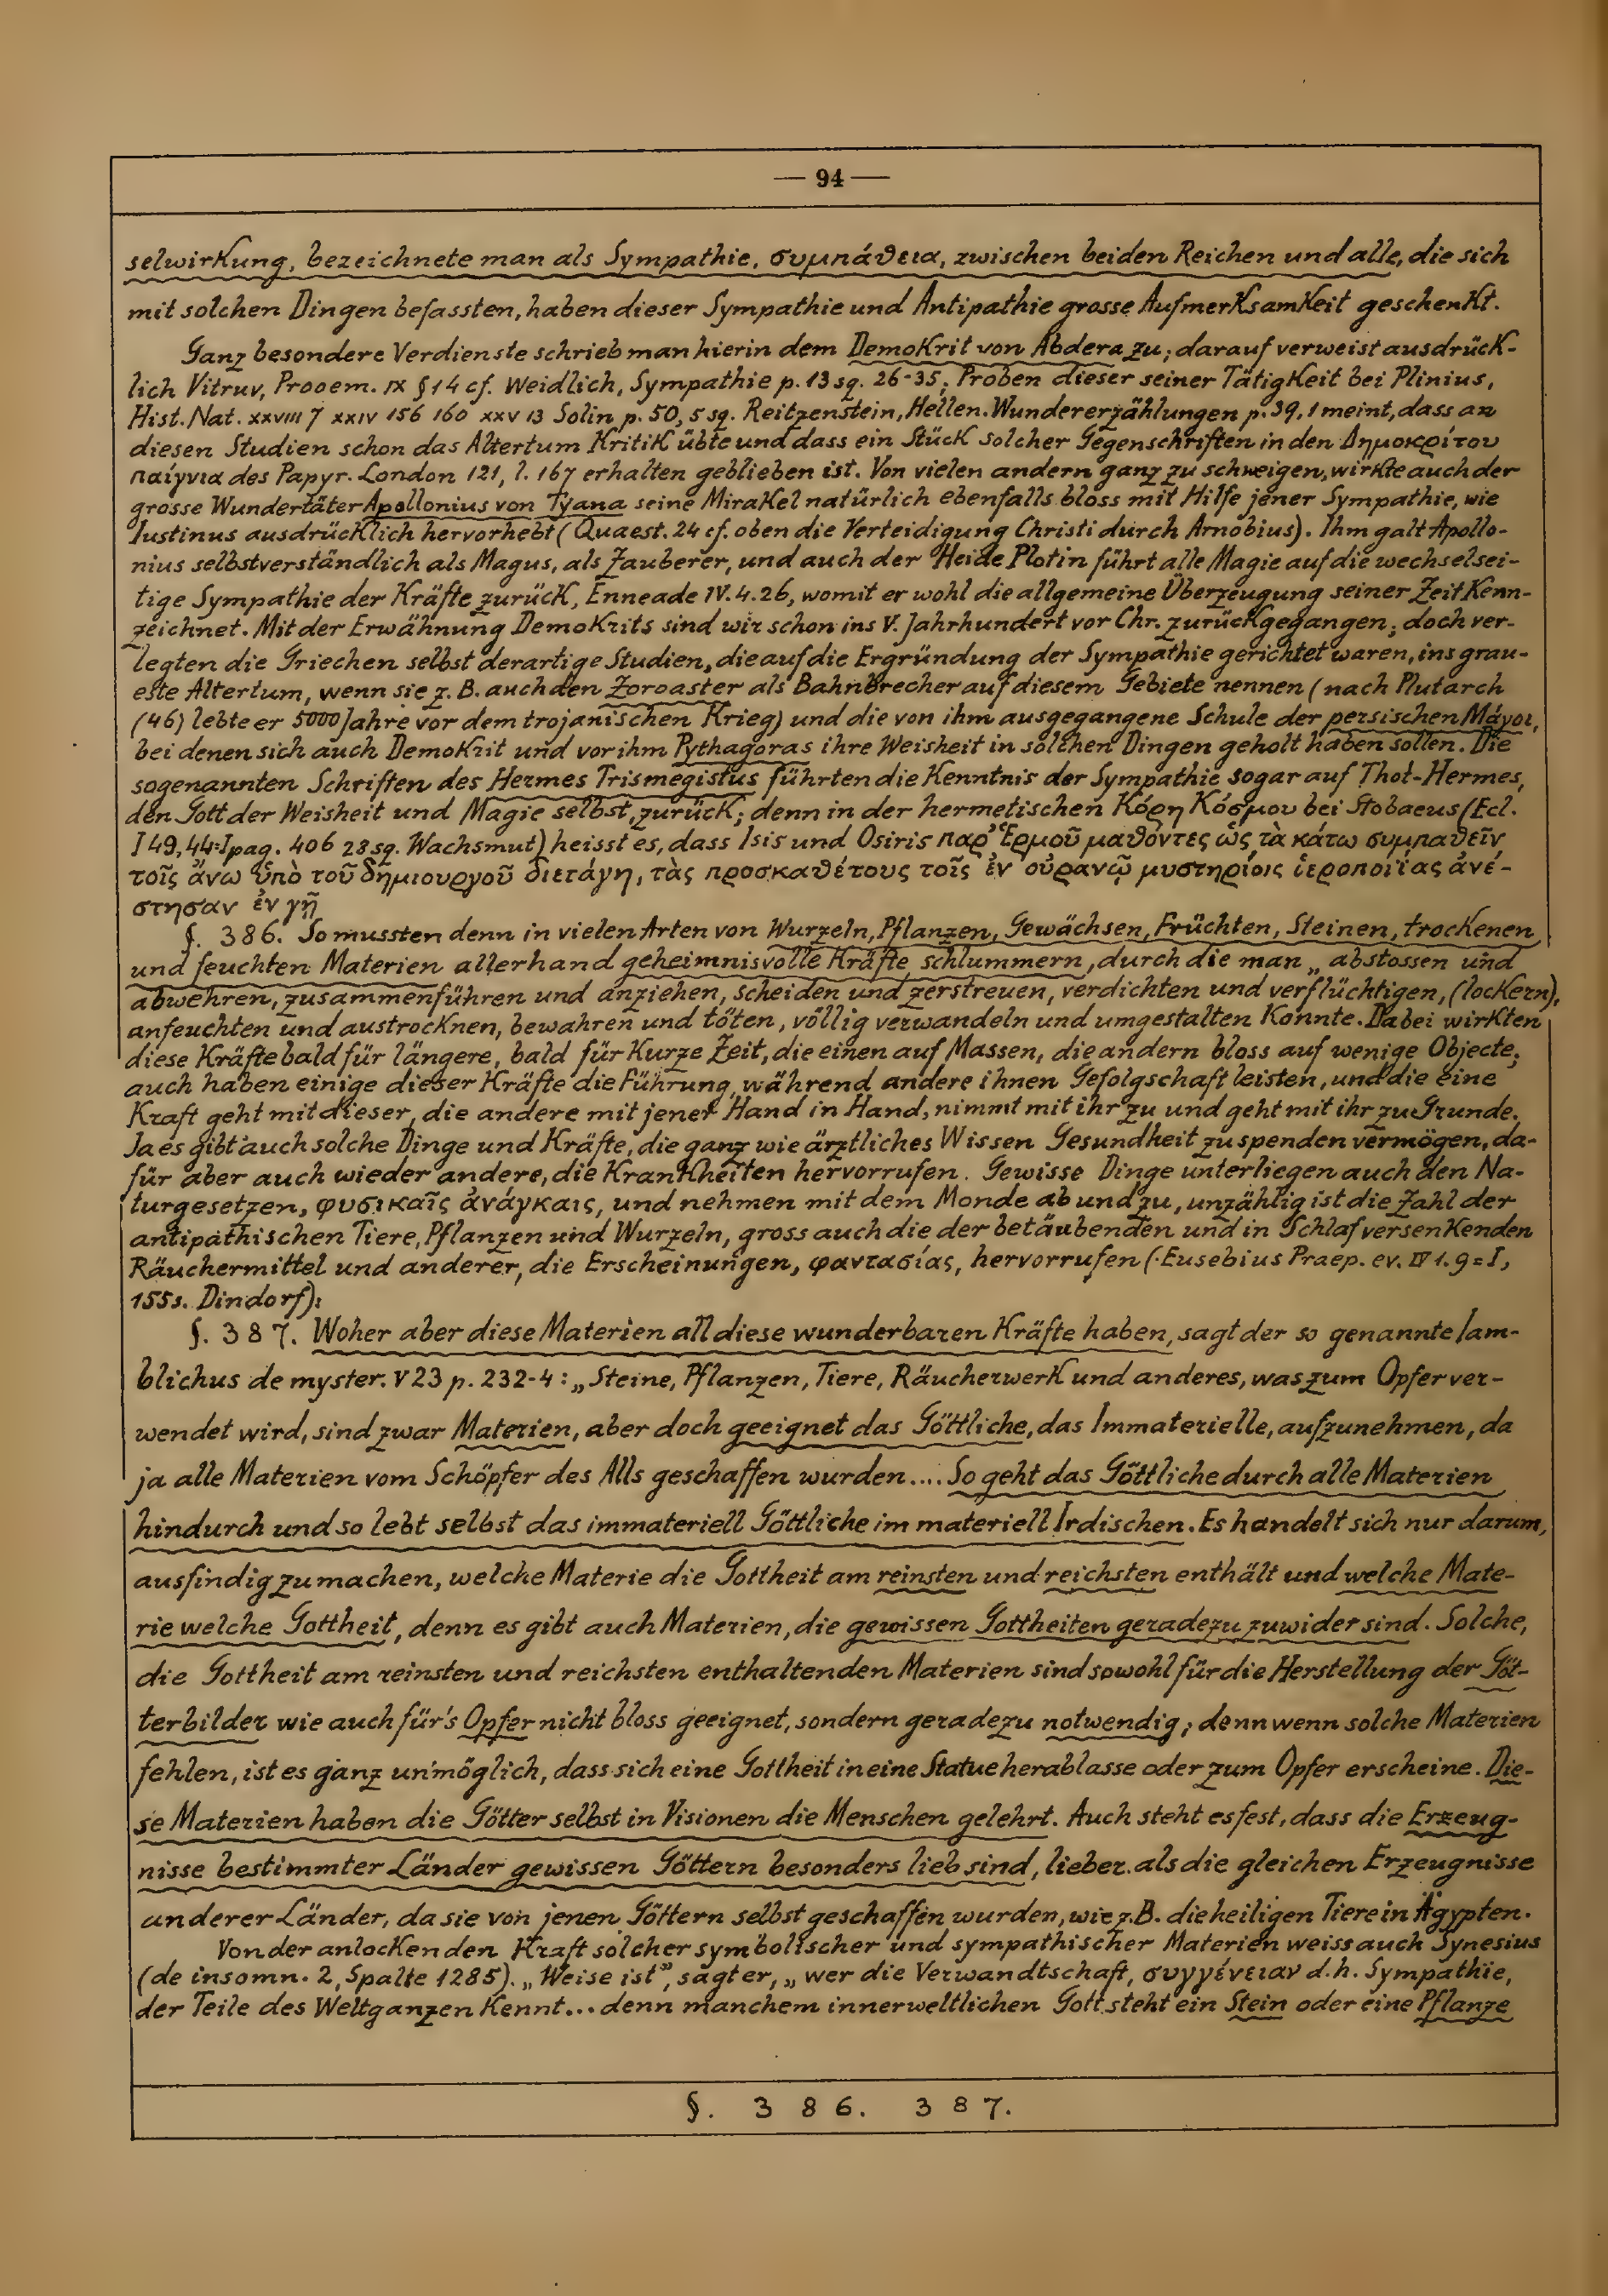 — 94 —
selwirkung, bezeichnete man als Sympathie, συμπάθεια, zwischen beiden Reichen und alle, die sich
mit solchen Dingen befassten, haben dieser Sympathie und Antipathie grosse Aufmerksamkeit geschenkt.
Ganz besondere Verdienste schrieb man hierin dem Demokrit von Abdera zu; darauf verweist ausdrück-
lich Vitruv, Prooem. IX § 14 cf. Weidlich, Sympathie p. 13 sq. 26-35; Proben dieser seiner Tätigkeit bei Plinius,
Hist. Nat. XXVIII 7 XXIV 156 160 XXV 13 Solin p. 50, 5 sq. Reitzenstein, Hellen. Wundererzählungen p. 39, 1 meint, dass an
diesen Studien schon das Altertum Kritik übte und dass ein Stück solcher Gegenschriften in den Δημοκρίτου
παίγνια des Papyr. London 121, l. 167 erhalten geblieben ist. Von vielen andern ganz zu schweigen, wirkte auch der
grosse Wundertäter Apollonius von Tyana seine Mirakel natürlich ebenfalls bloss mit Hilfe jener Sympathie, wie
Iustinus ausdrücklich hervorhebt (Quaest. 24 cf. oben die Verteidigung Christi durch Arnobius). Ihm galt Apollo-
nius selbstverständlich als Magus, als Zauberer, und auch der Heide Plotin führt alle Magie auf die wechselsei-
tige Sympathie der Kräfte zurück, Enneade IV. 4. 26, womit er wohl die allgemeine Überzeugung seiner Zeit kenn-
zeichnet. Mit der Erwähnung Demokrits sind wir schon ins V. Jahrhundert vor Chr. zurückgegangen; doch ver-
legten die Griechen selbst derartige Studien, die auf die Ergründung der Sympathie gerichtet waren, ins grau-
este Altertum, wenn sie z. B. auch den Zoroaster als Bahnbrecher auf diesem Gebiete nennen (nach Plutarch
(46) lebte er 5000 Jahre vor dem trojanischen Krieg) und die von ihm ausgegangene Schule der persischen Μάγοι,
bei denen sich auch Demokrit und vor ihm Pythagoras ihre Weisheit in solchen Dingen geholt haben sollen. Die
sogenannten Schriften des Hermes Trismegistus führten die Kenntnis der Sympathie sogar auf Thot-Hermes,
den Gott der Weisheit und Magie selbst, zurück; denn in der hermetischen Κόρη Κόσμου bei Stobaeus (Ecl.
I 49, 44=I pag. 406 28 sq. Wachsmut) heisst es, dass Isis und Osiris παρ' Ἑρμοῦ μαθόντες ὡς τὰ κάτω συμπαθεῖν
τοῖς ἄνω ὑπὸ τοῦ δημιουργοῦ διετάγη, τὰς προσκαθέτους τοῖς ἐν οὐρανῷ μυστηρίοις ἱεροποιίας ἀνέ-
στησαν ἐν γῇ
§. 386. So mussten denn in vielen Arten von Wurzeln, Pflanzen, Gewächsen, Früchten, Steinen, trockenen
und feuchten Materien allerhand geheimnisvolle Kräfte schlummern, durch die man „abstossen und
abwehren, zusammenführen und anziehen, scheiden und zerstreuen, verdichten und verflüchtigen, (lockern),
anfeuchten und austrocknen, bewahren und töten, völlig verwandeln und umgestalten konnte. Dabei wirkten
diese Kräfte bald für längere, bald für kurze Zeit, die einen auf Massen, die andern bloss auf wenige Objecte;
auch haben einige dieser Kräfte die Führung, während andere ihnen Gefolgschaft leisten, und die eine
Kraft geht mit dieser, die andere mit jener Hand in Hand, nimmt mit ihr zu und geht mit ihr zu Grunde.
Ja es gibt auch solche Dinge und Kräfte, die ganz wie ärztliches Wissen Gesundheit zu spenden vermögen, da-
für aber auch wieder andere, die Krankheiten hervorrufen. Gewisse Dinge unterliegen auch den Na-
turgesetzen, φυσικαῖς ἀνάγκαις, und nehmen mit dem Monde ab und zu, unzählig ist die Zahl der
antipathischen Tiere, Pflanzen und Wurzeln, gross auch die der betäubenden und in Schlaf versenkenden
Räuchermittel und anderer, die Erscheinungen, φαντασίας, hervorrufen (Eusebius Praep. ev. IV 1. 9 = I,
155 s. Dindorf):
§. 387. Woher aber diese Materien all diese wunderbaren Kräfte haben, sagt der so genannte Iam-
blichus de myster. V 23 p. 232-4: „Steine, Pflanzen, Tiere, Räucherwerk und anderes, was zum Opfer ver-
wendet wird, sind zwar Materien, aber doch geeignet das Göttliche, das Immaterielle, aufzunehmen, da
ja alle Materien vom Schöpfer des Alls geschaffen wurden.... So geht das Göttliche durch alle Materien
hindurch und so lebt selbst das immateriell Göttliche im materiell Irdischen. Es handelt sich nur darum,
ausfindig zu machen, welche Materie die Gottheit am reinsten und reichsten enthält und welche Mate-
rie welche Gottheit, denn es gibt auch Materien, die gewissen Gottheiten geradezu zuwider sind. Solche,
die Gottheit am reinsten und reichsten enthaltenden Materien sind sowohl für die Herstellung der Göt-
terbilder wie auch für's Opfer nicht bloss geeignet, sondern geradezu notwendig; denn wenn solche Materien
fehlen, ist es ganz unmöglich, dass sich eine Gottheit in eine Statue herablasse oder zum Opfer erscheine. Die-
se Materien haben die Götter selbst in Visionen die Menschen gelehrt. Auch steht es fest, dass die Erzeug-
nisse bestimmter Länder gewissen Göttern besonders lieb sind, lieber als die gleichen Erzeugnisse
anderer Länder, da sie von jenen Göttern selbst geschaffen wurden, wie z. B. die heiligen Tiere in Ägypten.
Von der anlockenden Kraft solcher symbolischer und sympathischer Materien weiss auch Synesius
(de insomn. 2, Spalte 1285). „Weise ist", sagt er, „wer die Verwandtschaft, συγγένειαν d.h. Sympathie,
der Teile des Weltganzen kennt... denn manchem innerweltlichen Gott steht ein Stein oder eine Pflanze
§. 386. 387.